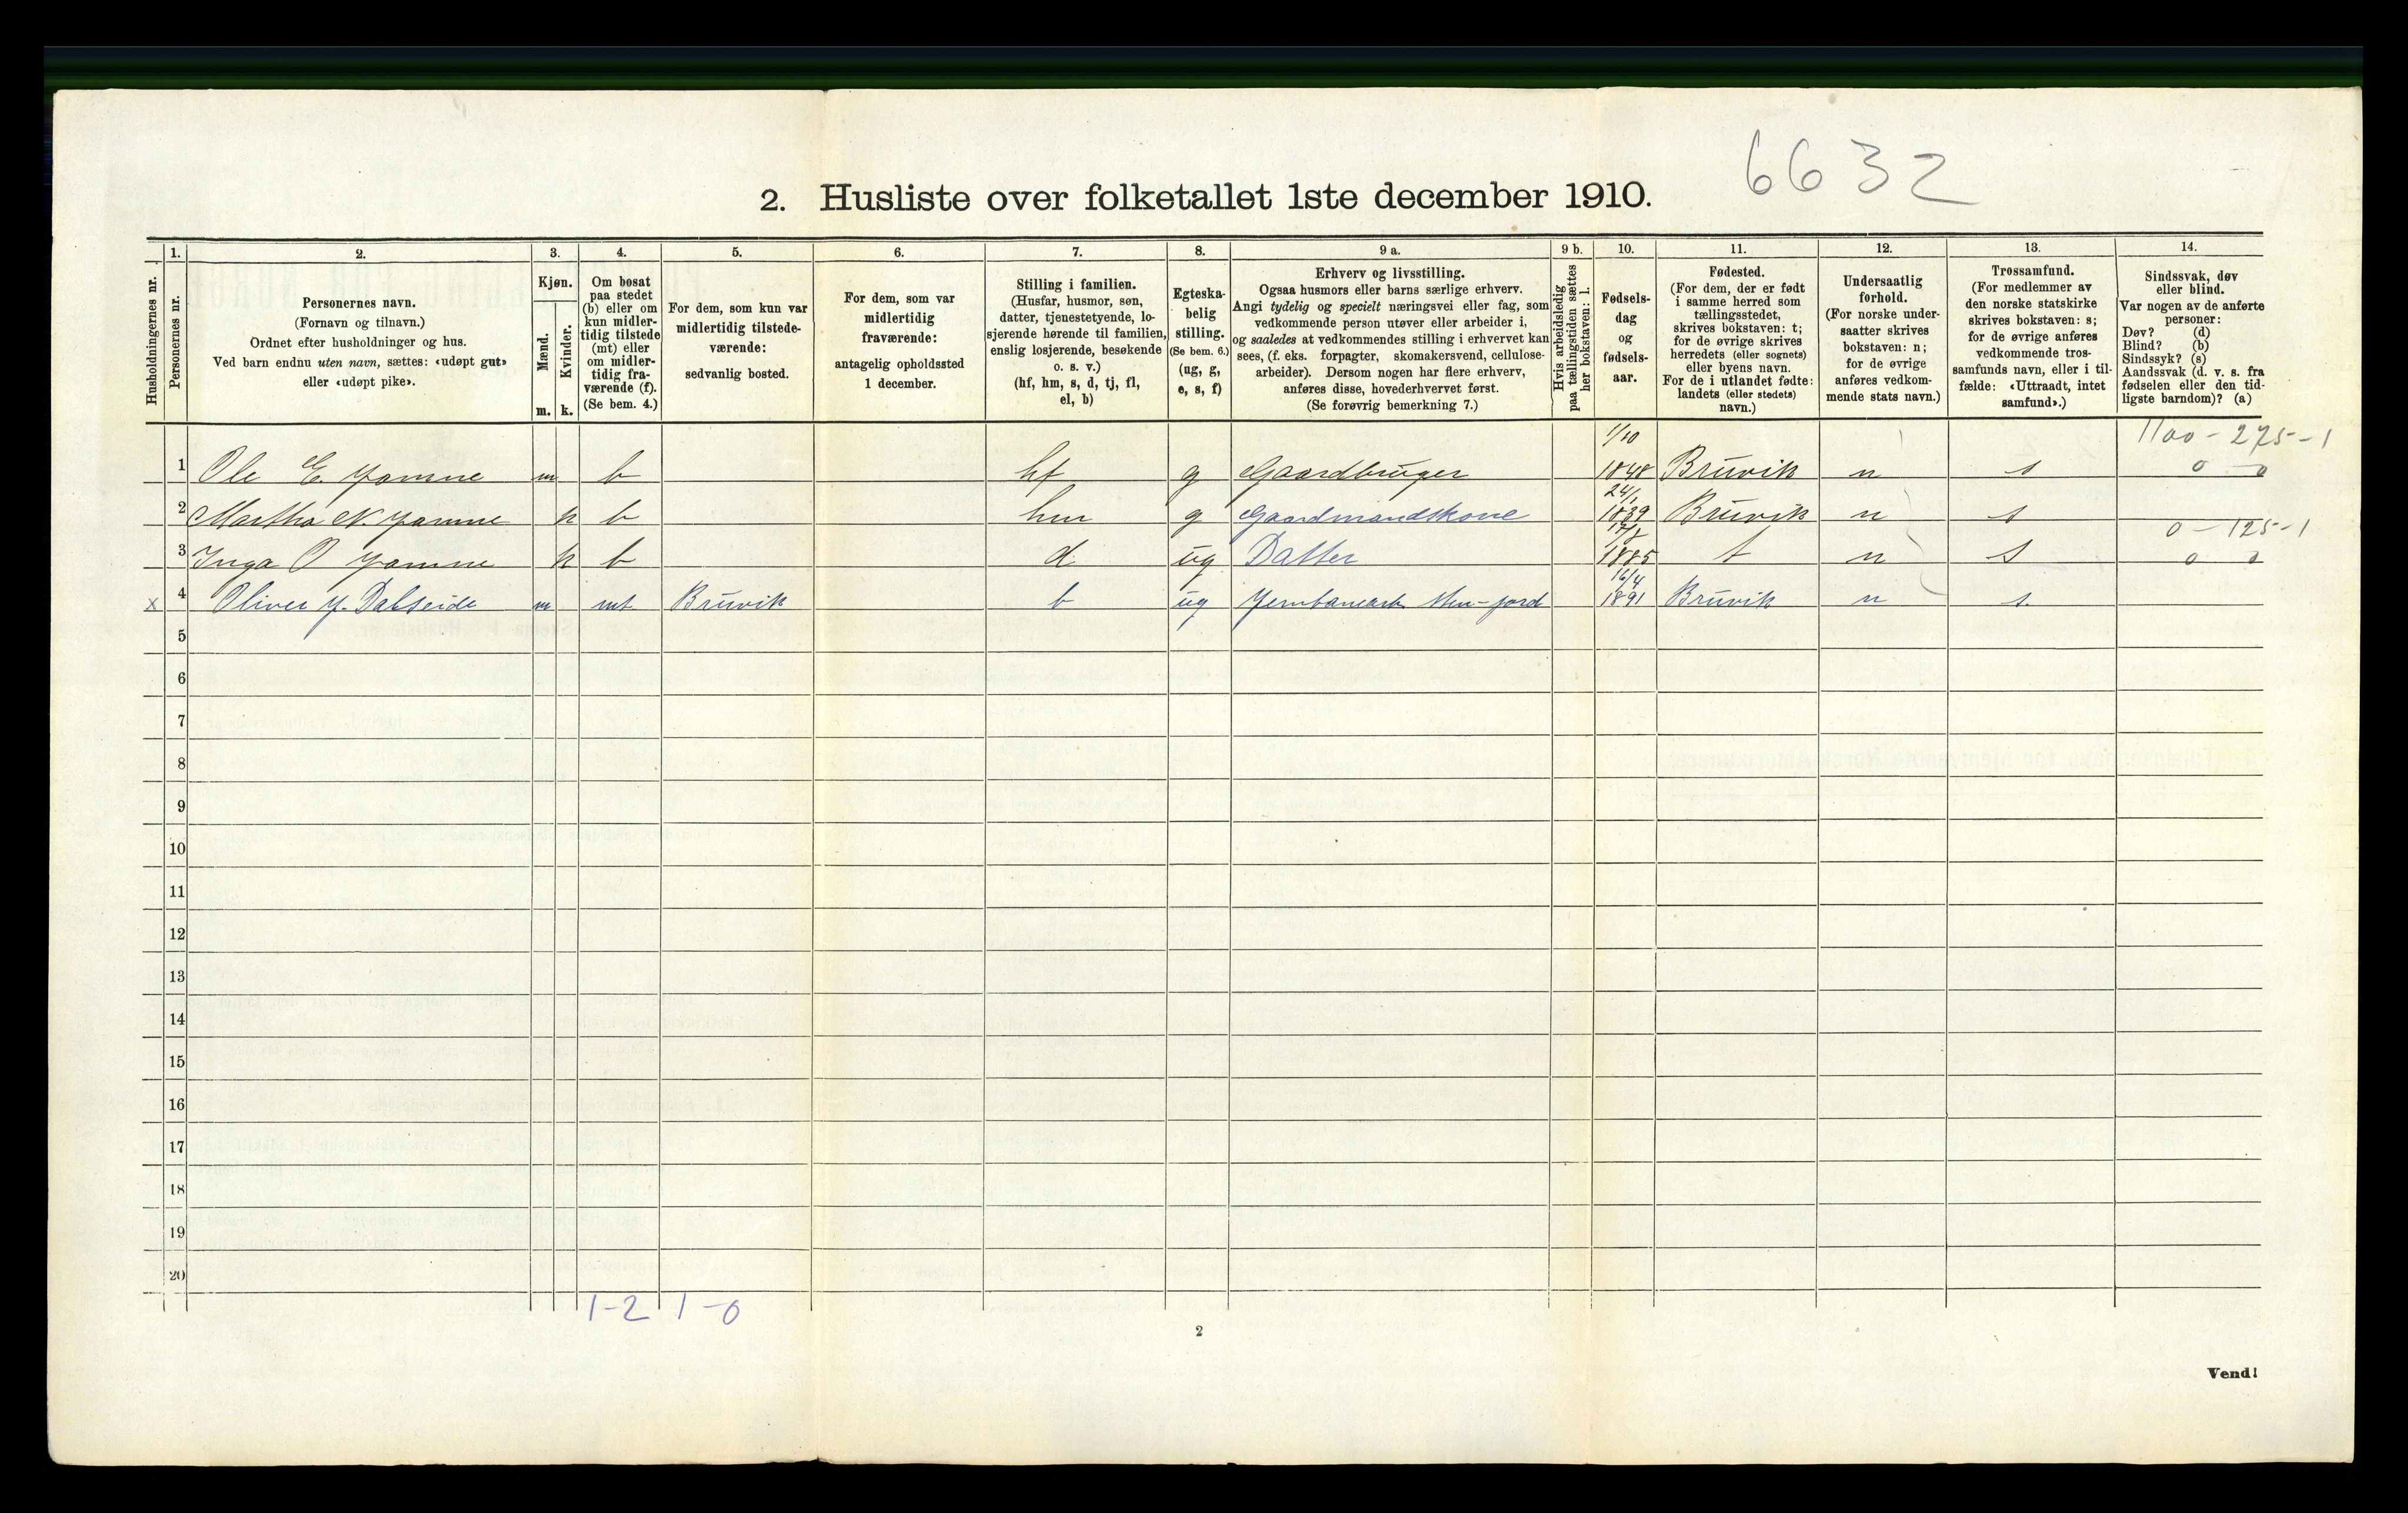 6632
2. Husliste over folketallet 1ste december 1910.
Husholdningernes nr.
1.
Personernes nr.
2.
Personernes navn.
(Fornavn og tilnavn.)
Ordnet efter husholdninger og hus.
Ved barn endnu uten navn, sættes: «udøpt gut»
eller «udøpt pike».
3.
Kjøn.
Mænd.
Kvinder.
m. k.
4.
Om bosat
paa stedet
(b) eller om
kun midler-
tidig tilstede
(mt) eller
om midler-
tidig fra-
værende (f).
(Se bem. 4.)
5.
For dem, som kun var
midlertidig tilstede-
værende:
sedvanlig bosted.
6.
For dem, som var
midlertidig
fraværende:
antagelig opholdssted
1 december.
7.
Stilling i familien.
(Husfar, husmor, søn,
datter, tjenestetyende, lo-
sjerende hørende til familien,
enslig losjerende, besøkende
o. s. v.)
(hf, hm, s, d, tj, fl,
el, b)
8.
Egteska-
belig
stilling.
(Se bem. 6.)
(ug, g,
e, s, f)
9 a.
Erhverv og livsstilling.
Ogsaa husmors eller barns særlige erhverv.
Angi tydelig og specielt næringsvei eller fag, som
vedkommende person utøver eller arbeider i,
og saaledes at vedkommendes stilling i erhvervet kan
sees, (f. eks. forpagter, skomakersvend, cellulose-
arbeider). Dersom nogen har flere erhverv,
anføres disse, hovederhvervet først.
(Se forøvrig bemerkning 7.)
9 b.
Hvis arbeidsledig
paa tællingstiden sættes
her bokstaven: l.
10.
Fødsels-
dag
og
fødsels-
aar.
11.
Fødested.
(For dem, der er født
i samme herred som
tællingsstedet,
skrives bokstaven: t;
for de øvrige skrives
herredets (eller sognets)
eller byens navn.
For de i utlandet fødte:
landets (eller stedets)
navn.)
12.
Undersaatlig
forhold.
(For norske under-
saatter skrives
bokstaven: n;
for de øvrige
anføres vedkom-
mende stats navn.)
13.
Trossamfund.
(For medlemmer av
den norske statskirke
skrives bokstaven: s;
for de øvrige anføres
vedkommende tros-
samfunds navn, eller i til-
fælde: «Uttraadt, intet
samfund».)
14.
Sindssvak, døv
eller blind.
Var nogen av de anførte
personer:
Døv? (d)
Blind? (b)
Sindssyk? (s)
Aandssvak (d. v. s. fra
fødselen eller den tid-
ligste barndom)? (a)
1100 - 275 - 1
1 Ole E. Jamne m b hf g Gaardbruger 1/10 1848 Bruvik n s 0 0
2 Martha N. Jamne k b hm g Gaardmandskone 1839 Bruvik n s
0 - 125 - 1
3 Inga O Jamne k b d ug Datter 1885 t n s 0 0
x 4 Oliver J. Dalseide m mt Bruvik b ug 16/4 1891 Bruvik n s.
5
6
7
8
9
10
11
12
13
14
15
16
17
18
19
20
1-2 1-0
2
Vend!